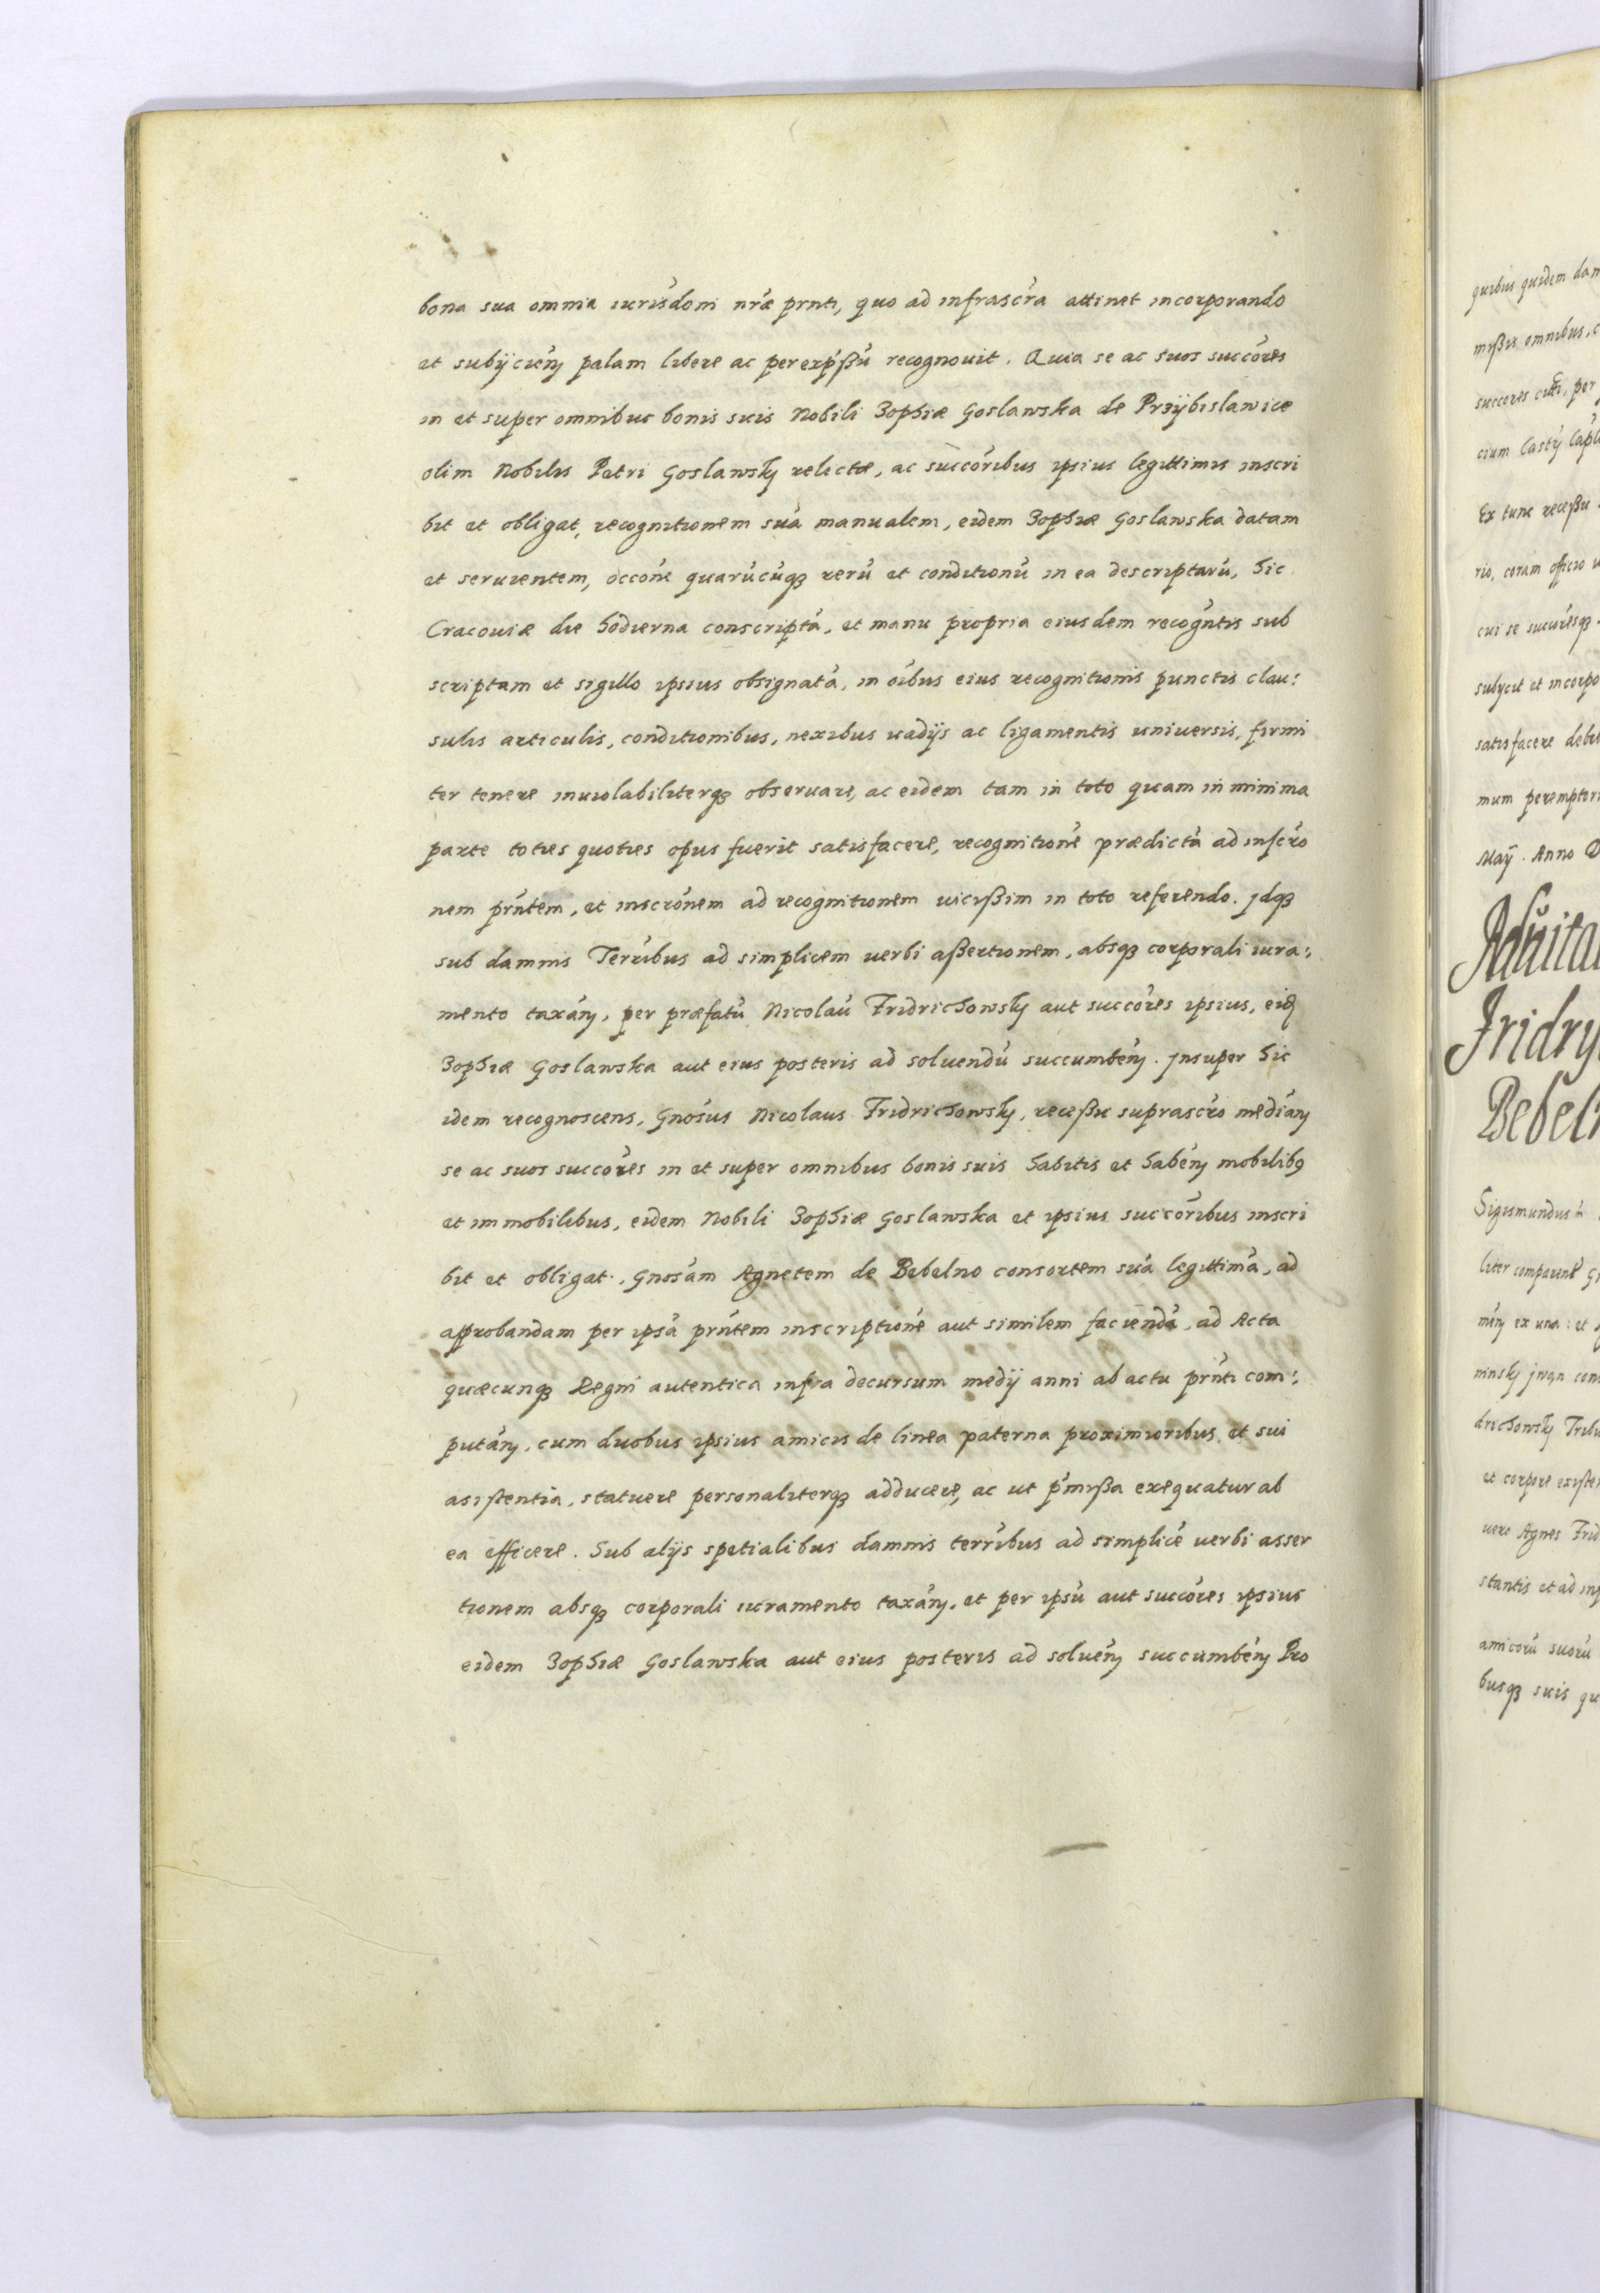 bona sua omnia iurisdoni nrae prnti, quo ad infrascra attinet incorporando
et subijcien palam libere ac per expßu recognouit. Quia se ac suos succores
in et super omnibus bonis suis Nobili Zophiæ Goslawska de Przÿbislawice
olim Nobilis Petri Goslawskÿ relictæ, ac succoribus ipsius legittimis inscri
bit et obligat, recognitionem suá manualem, eidem Zophiæ Goslawska datam
et seruientem, occone quarucuq₃ reru et conditionu in ea descriptaru, hic
Cracouiæ die hodierna conscriptá, et manu propria eiusdem recogntis sub
scriptam et sigillo ipsius obsignatá, in oibus eius recognitionis punctis clau:
sulis articulis, conditionibus, nexibus uadijs ac ligamentis uniuersis, firmi
ter tenere inuiolabiliterq₃ obseruare, ac eidem tam in toto quam in minima
parte toties quoties opus fuerit satisfacere, recognitioné prædictá ad inscro
nem prntem, et inscronem ad recognitionem uicißim in toto referendo. Jdq₃
sub damnis Terribus ad simplicem uerbi aßertionem, absq₃ corporali iura:
mento taxán, per præfatú Nicolaú Fridrichowskÿ aut succores ipsius, eid
Zophiæ Goslawska aut eius posteris ad soluendú succumbén. Jnsuper hic
idem recognoscens, Gnosus Nicolaus Fridrichowskÿ, receßu suprascro median
se ac suos succores in et super omnibus bonis suis habitis et habén mobilib9
et immobilibus, eidem Nobili Zophiæ Goslawska et ipsius succoribus inscri
bit et obligat. Gnosam Agnetem de Bebelno consortem suá legittimá, ad
approbandam per ipsá prntem inscriptioné aut similem faciendá, ad Acta
quæcunq₃ Regni autentica infra decursum medij anni ab actu prnti com:
pután, cum duobus ipsius amicis de linea paterna proximioribus et sui
asistentia, statuere personaliterq₃ adducere, ac ut pmißa exequatur ab
ea efficere. Sub alijs spetialibus damnis terribus ad simplicé uerbi asser
tionem absq₃ corporali iuramento taxán, et per ipsú aut succores ipsius
eidem Zophiæ Goslawska aut eius posteris ad soluén succumbén Pro
quibus quidem dam
mißis omnibus,
succores citti, per
cium Castri Capti
Ex tunc receßu
rio, coram officio
cui se sucuresq₃
subycit et incorpo
satisfacere debe
mum perempteri
Maÿ. Anno D
Aduita
Fridry
Bebel
Sigismundus
liter comparent G
mén ex una: et
minskÿ
drichowskÿ Tribu
et corpore existen
uero Agnes Frid
stantis et ad in
amicorú suorú
busq₃ suis qu